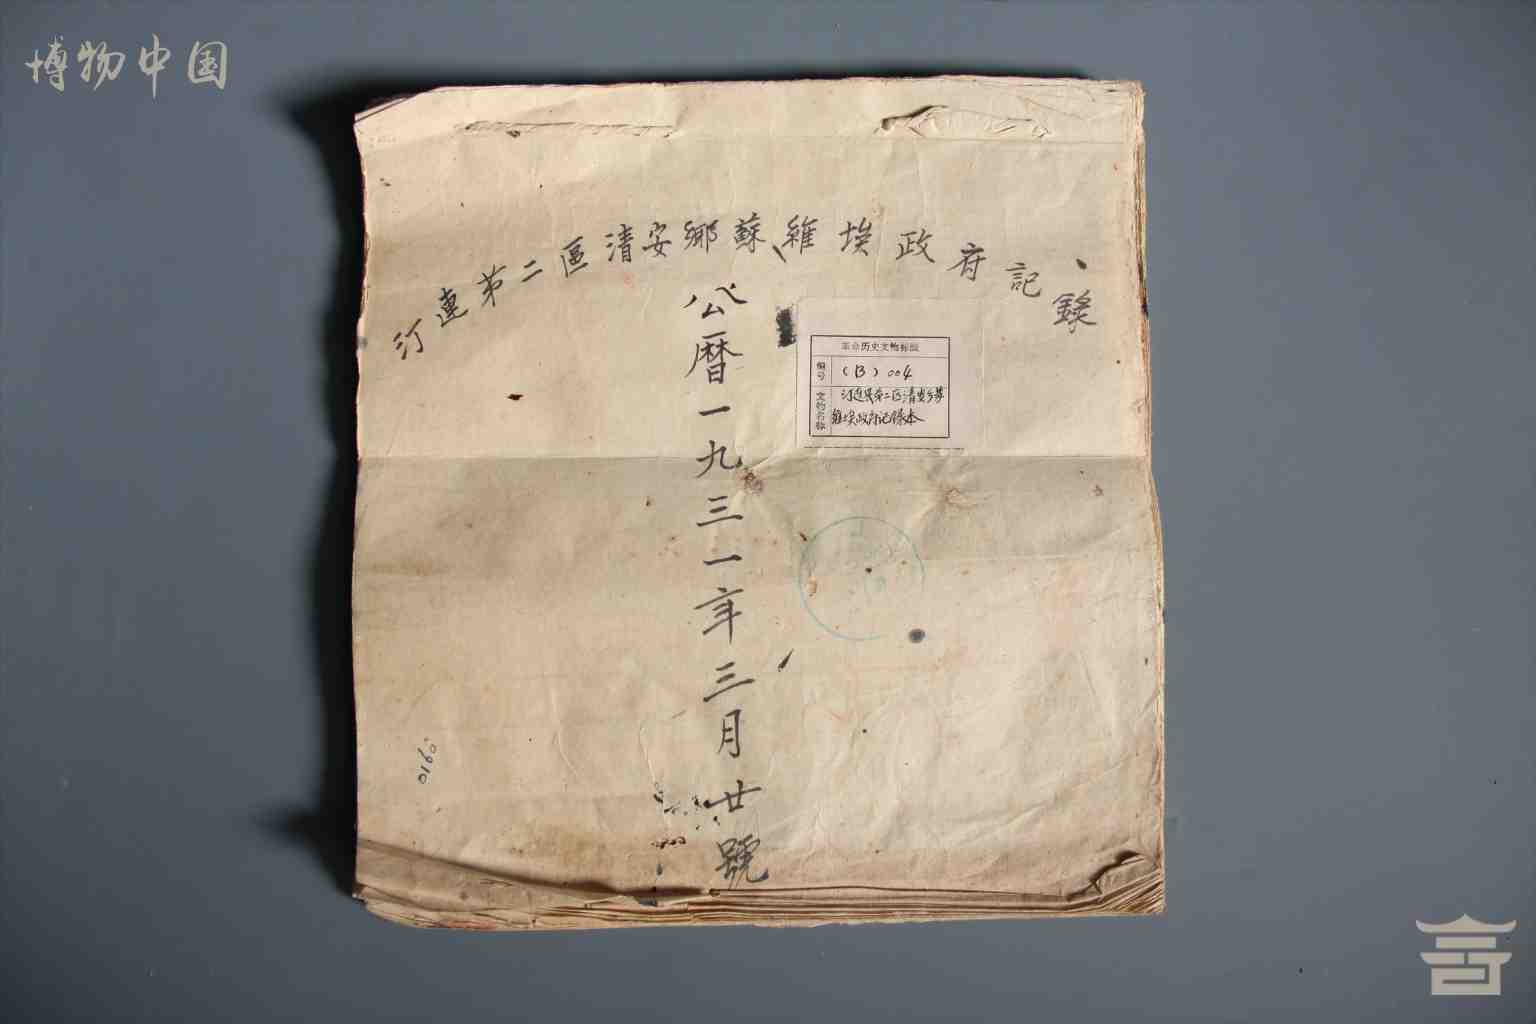 博物中国
汀連第二區清安鄉蘇維埃政府記錄
公曆一九三一年三月廿號
革命历史文物标签
编号
(B) 004
文物名称
汀连县第二区清安乡苏
維埃政府记錄本
0160